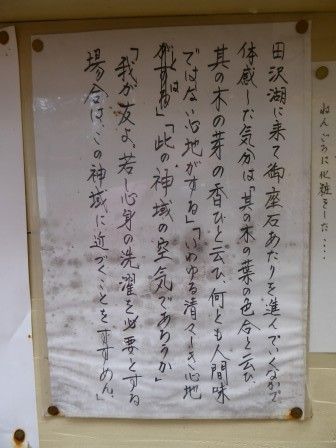 田沢湖に来て御座石あたりを進んでいくなかで
体感した気分は「其の木の葉の色合と云ひ、
其の木の芽の香ひと云ひ、何とも人間味
ではない心地がする」「いわゆる清々しき心地
とは」「此の神域の空気であらうか」
「我が友よ、若し心身の洗濯を必要とする
場合は、この神域に近づくことをすすめん」
ねんごろに化粧をした・・・